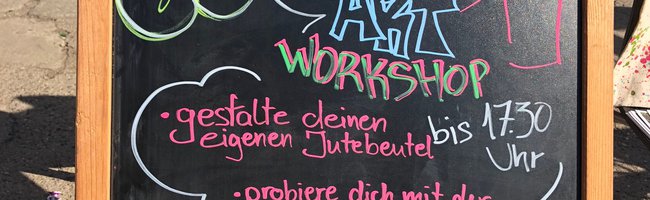 ART
WORKSHOP
• gestalte deinen
eigenen Jutebeutel
bis 17.30
Uhr
• probiere dich mit der